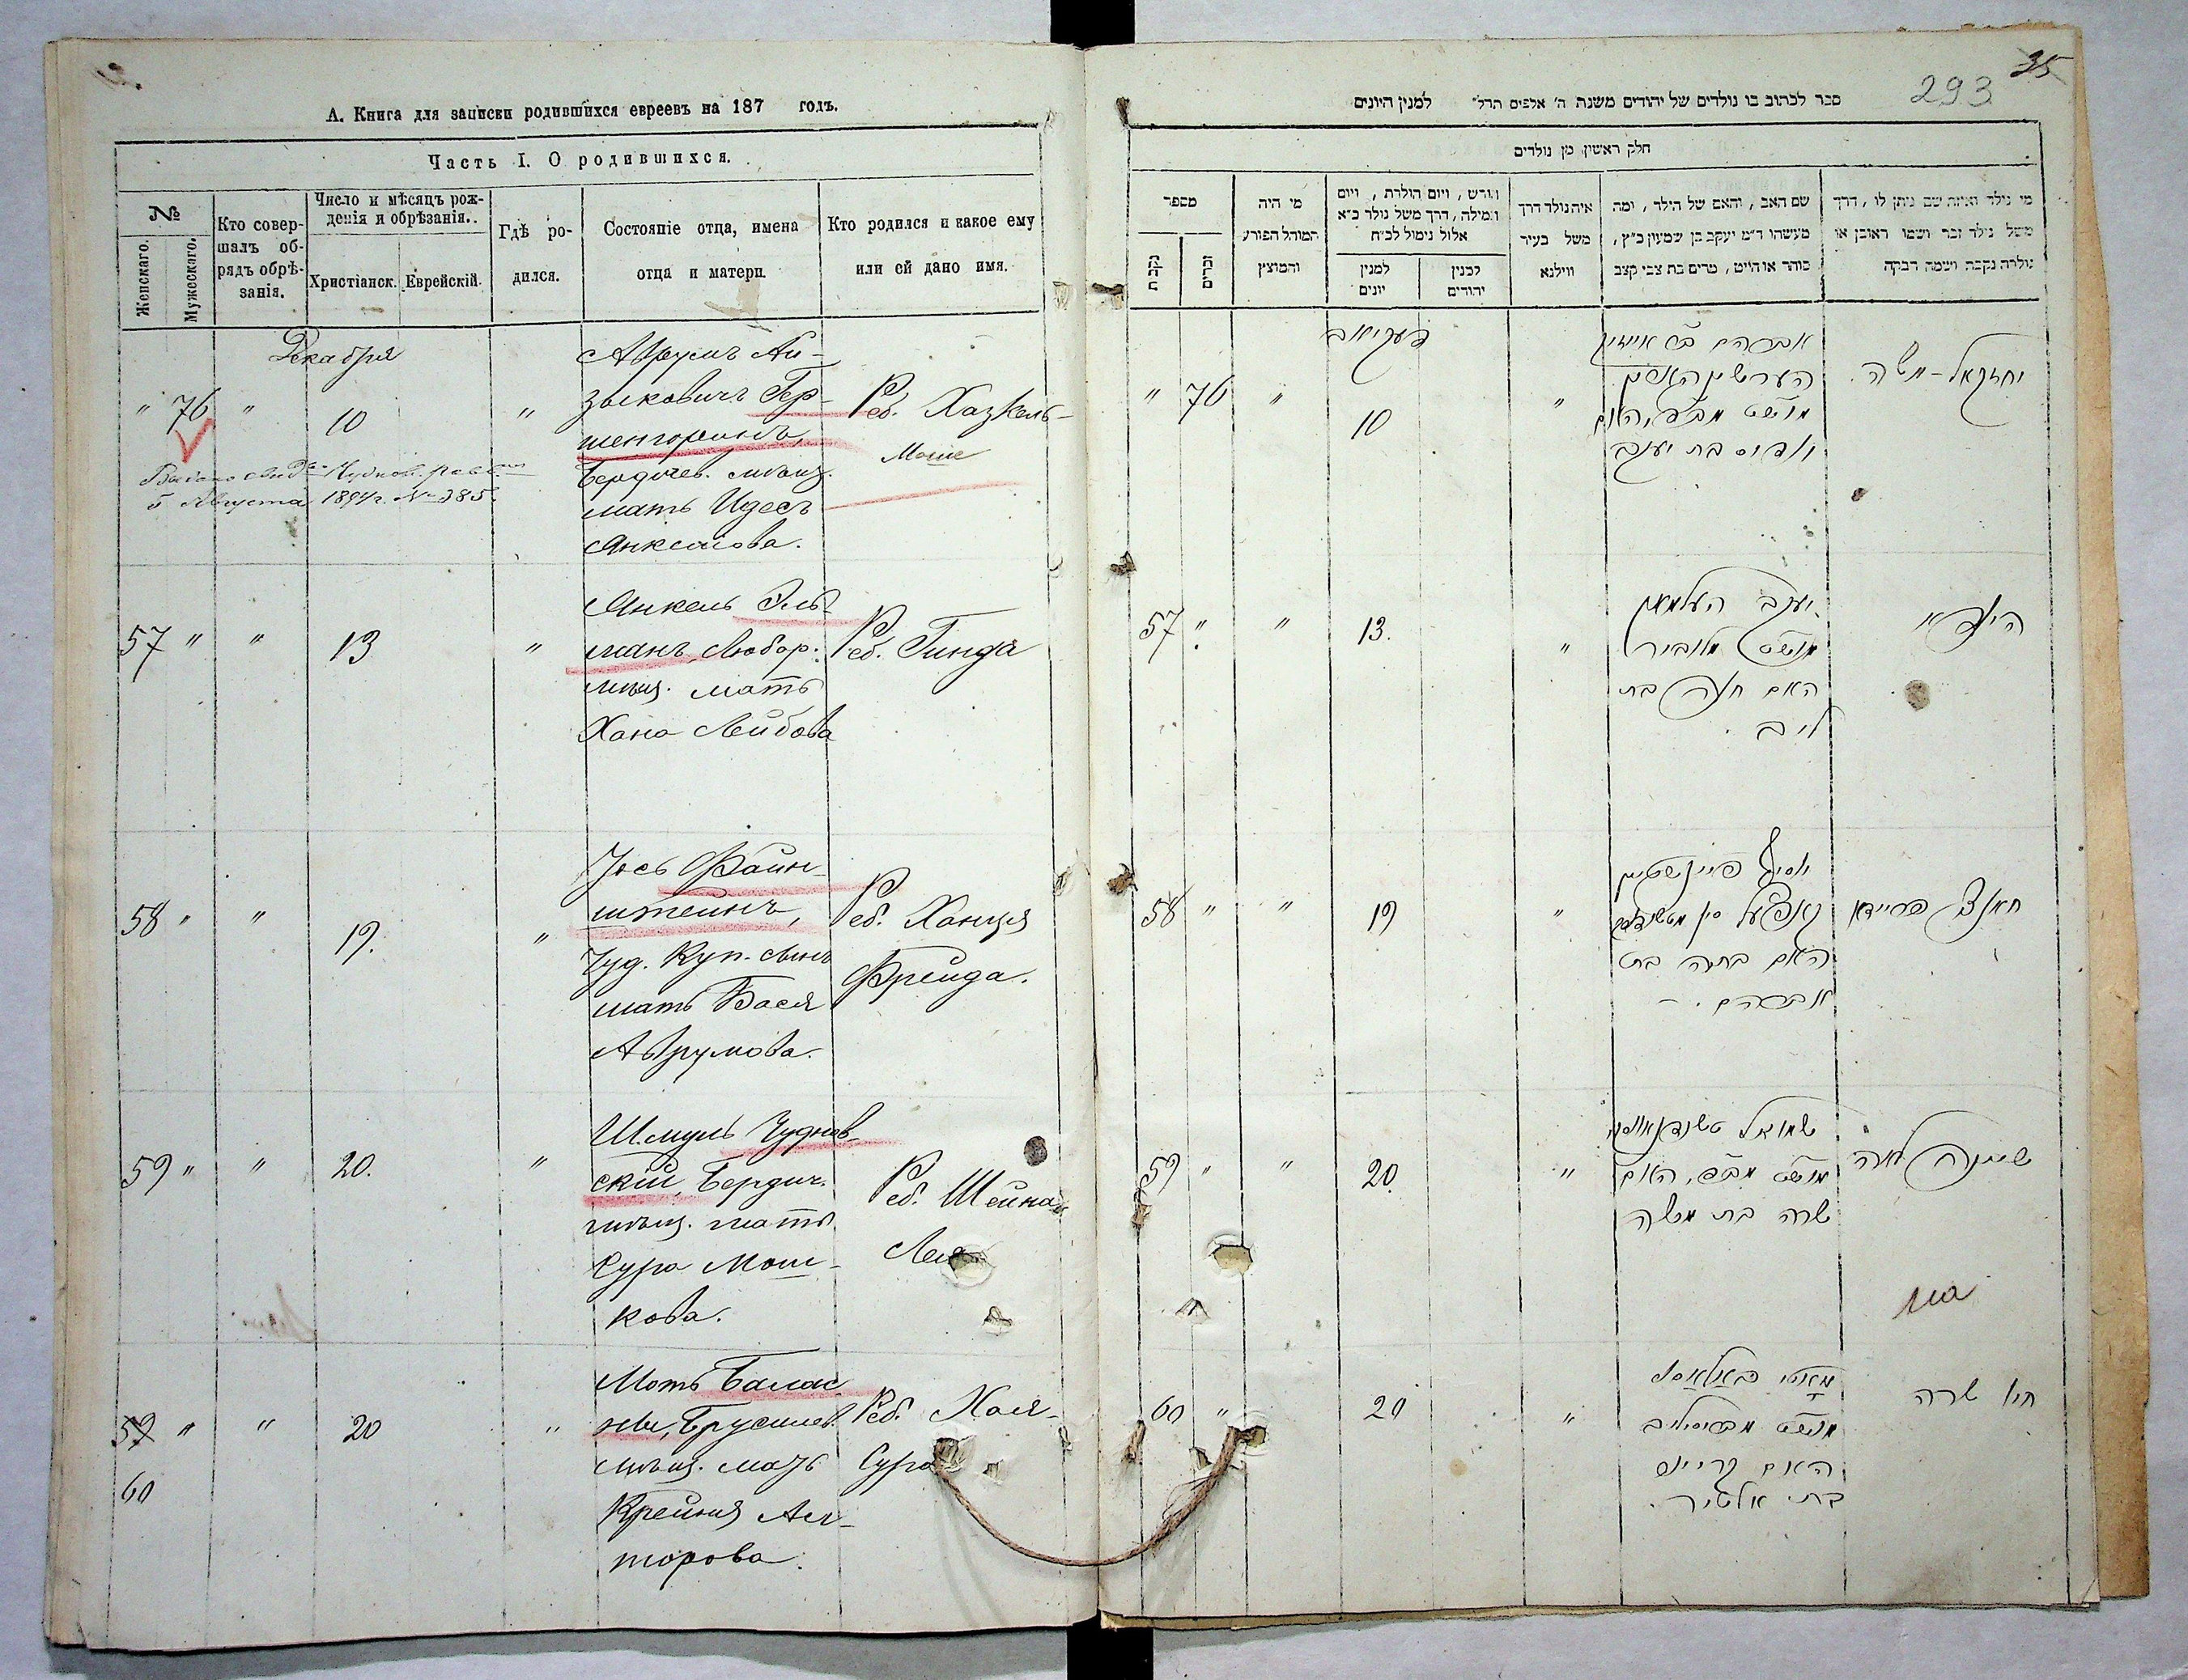 А. Книга для записки родившихся евреевъ на 187 годъ.
Часть I. О родившихся.
№
Женскаго.
Мужескаго.
Кто совер-
шалъ об-
рядъ обрѣ-
занія.
Число и мѣсяцъ рож-
денія и обрѣзанія.
Христіанск.
Еврейскій.
Гдѣ ро-
дился.
Состояніе отца, имена
отца и матери.
Кто родился и какое ему
или ей дано имя.
Декабря
" 76 " 10 "
Аврумъ Ай-
зыковичъ Гер-
шенгоринъ,
Бердичев. мѣщ.
мать Идесъ
Янкелова.
Реб. Хазкель-
Моше
5 Августа 1894 г. № 385.
57 " " 13 "
Янкель Эль-
манъ, Любор.
мѣщ. мать
Хана Лейбова
Реб. Гинда
58 " " 19. "
Іось Файн-
штейнъ,
Чуд. Куп. сынъ
мать Бася
Аврумова.
Реб. Ханця
Фрейда.
59 " " 20. "
Шмуль Чуднов-
скій, Бердич.
мѣщ. мать
Сура Мош-
кова.
Реб. Шейна
Лея
59 " " 20 "
60
Моть Балас-
ны, Брусилов.
мѣщ. мать
Крейня Ал-
торова.
Реб. Хая-
Сура
35
293
ספר לכתוב בו נולדים של יהודים משנת ה' אלפים תרל" למנין היונים
חלק ראשון מן נולדים
מספר
נקבות
זכרים
מי היה
המוהל הפורע
והמוצץ
חודש, ויום הולדת, ויום
המילה, דרך משל נולד כ"א
אלול נימול לכ"ח
למנין
יונים
למנין
יהודים
איה נולד דרך
משל בעיר
ווילנא
שם האב, והאם של הילד, ומה
מעשהו ד"מ יעקב בן שמעון כ"ץ,
סוחר או חייט, מרים בת צבי קצב
מי נולד ואיזה שם ניתן לו, דרך
משל נולד זכר ושמו ראובן או
נולדה נקבה ושמה רבקה
" 76 " 10 "
האם
בת יעקב
יחזקאל-משה
57 " " 13. "
יעקב העלמאן
האם חנה בת
ליב
הינדא
58 " " 19 "
יוסף פיינשטיין
האם בתיה בת
אברהם.
חאנצי פריידא
59 " " 20. "
האם
שרה בת משה
שיינה לאה
60 " 20 "
האם קריינא
בת אלטיר.
חיה שרה